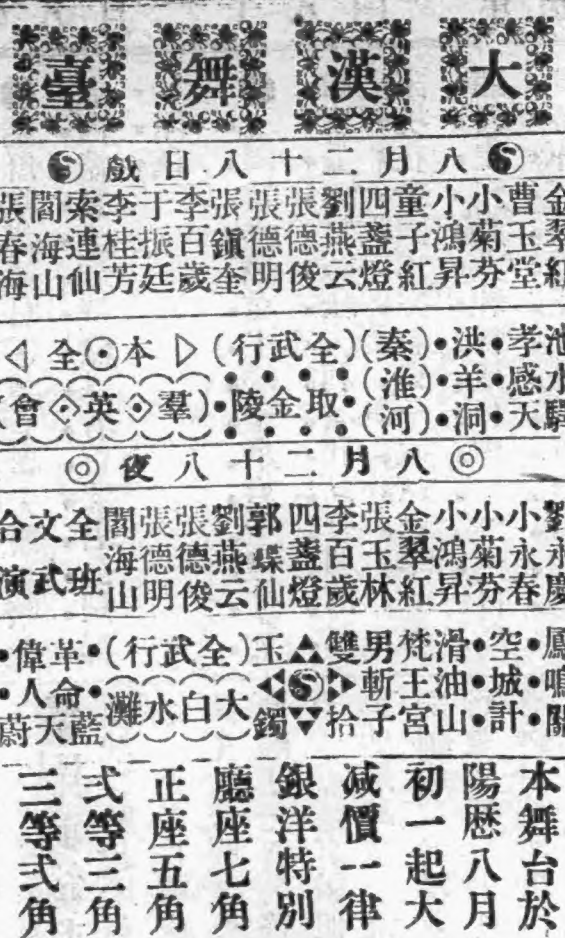 大漢舞臺
八月二十八日戲
金翠紅
曹玉堂
小菊芬
小鴻昇
童子紅
四盞燈
劉燕云
張德俊
張德明
張鎮奎
李百歲
于振廷
李桂芳
索連仙
閻海山
張春海
池水驛
孝感天
洪羊洞
(秦)(淮)(河)
(全武行)
取金陵
本全
羣英會
八月二十八夜
劉永慶
小永春
小菊芬
小鴻昇
金翠紅
張玉林
李百歲
四盞燈
郭蝶仙
劉燕云
張德俊
張德明
閻海山
全班
文武
合演
鳳鳴關
空城計
滑油山
梵王宮
男斬子
雙拾玉鐲
(全武行)
大白水灘
革命偉人
藍天蔚
本舞台於
陽歷八月
初一起大
減價一律
銀洋特別
廳座七角
正座五角
弍等三角
三等弍角